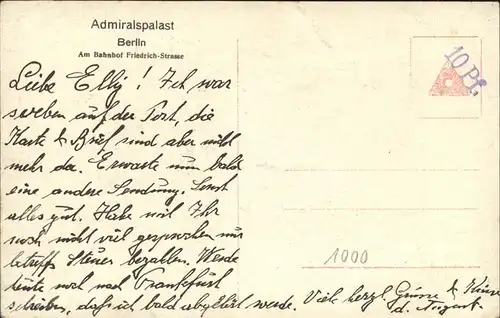 Admiralspalast
Berlin
Am Bahnhof Friedrich-Strasse
10 Pf.
Liebe Elly! Ich war
soeben auf der Post, die
Karte & Brief sind aber nicht
mehr da. Erwarte nun bald
eine andere Sendung. Sonst
alles gut. Habe mit Ihr
noch nicht viel gesprochen nur
betreffs Steuer bezahlen. Werde
heute noch nach Frankfurt
schreiben, dass ich bald abgelöst werde. Viele herzl. Grüsse & Küsse
d.
1000